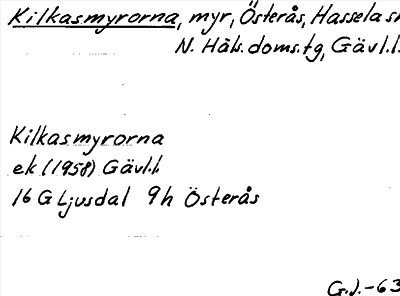 Kilkasmyrorna, myr, Österås, Hassela sn
N. Häls. doms.tg, Gävl.l.
Kilkasmyrorna
ek (1958) Gävl.l.
16 G Ljusdal 9h Österås
G.J.-63